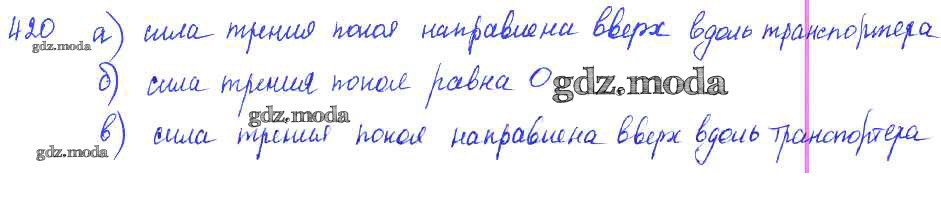 420 а) сила трения покоя направлена вверх вдоль транспортера
gdz.moda
б) сила трения покоя равна 0 gdz.moda
gdz.moda
в) сила трения покоя направлена вверх вдоль транспортера
gdz.moda